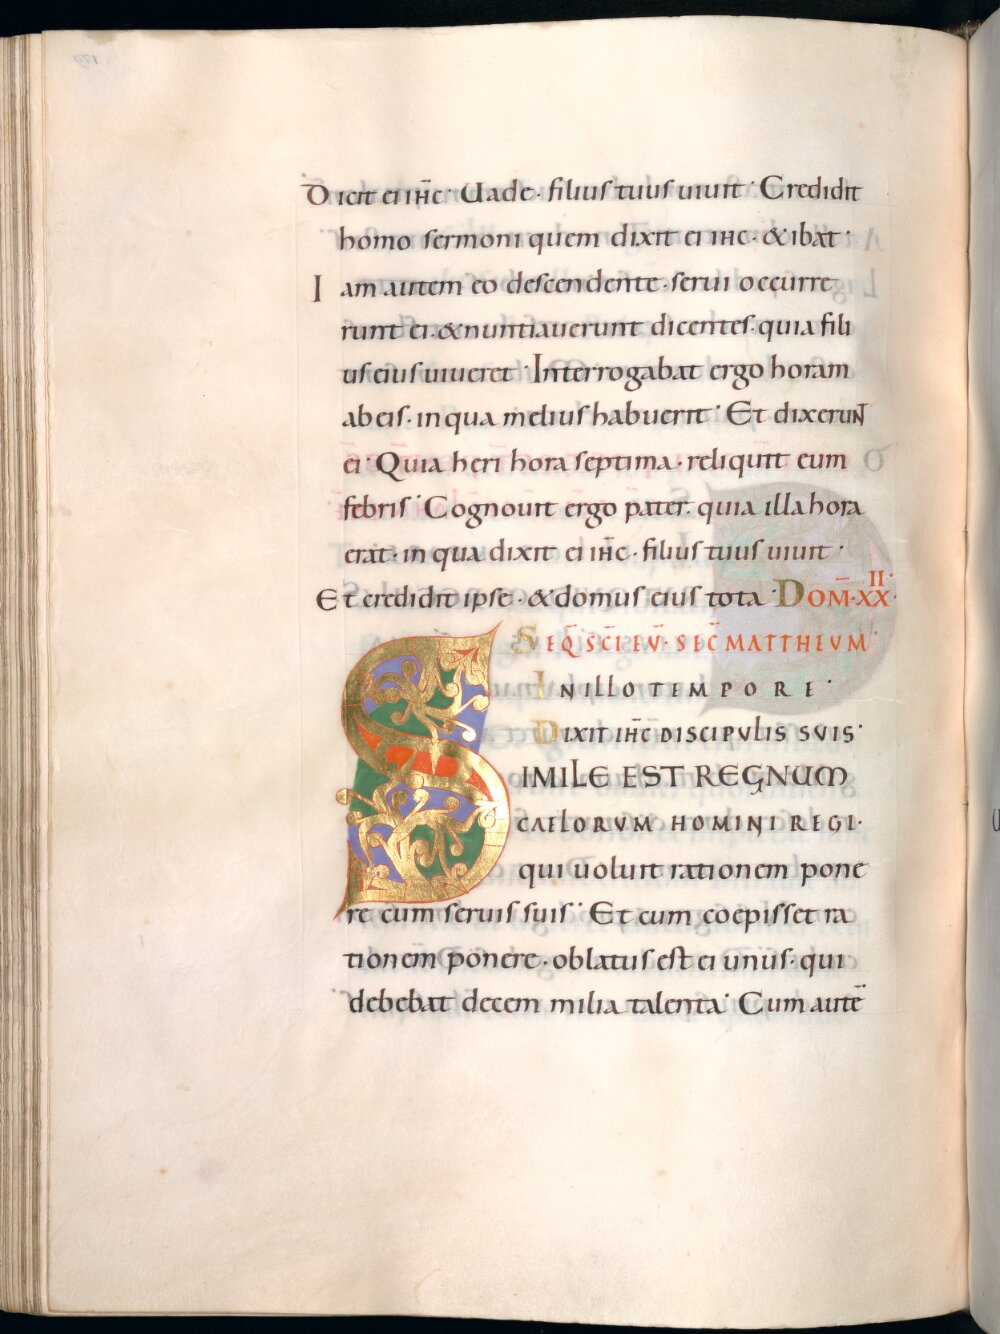 Dicit ei ihc · Uade · filius tuus uiuit · Credidit
homo sermoni quem dixit ei ihc · & ibat ·
Iam autem eo descendente · serui occurre
runt ei · & nuntiauerunt dicentes · quia fili
us eius uiueret · Interrogabat ergo horam
ab eis · in qua melius habuerit · Et dixerunt
ei · Quia heri hora septima · reliquit eum
febris · Cognouit ergo pater · quia illa hora
erat · in qua dixit ei ihc · filius tuus uiuit ·
Et credidit ipse · & domus eius tota · DOM̄ · XXII ·
SEQ̄ SC̄I EV̄ · SEC̄ MATTHEVM
IN ILLO TEMPORE ·
DIXIT IHC̄ DISCIPVLIS SVIS ·
SIMILE EST REGNUM
CAELORVM HOMINI REGI ·
qui uoluit rationem pone
re cum seruis suis · Et cum coepisset ra
tionem ponere · oblatus est ei unus · qui
debebat decem milia talenta · Cum autē